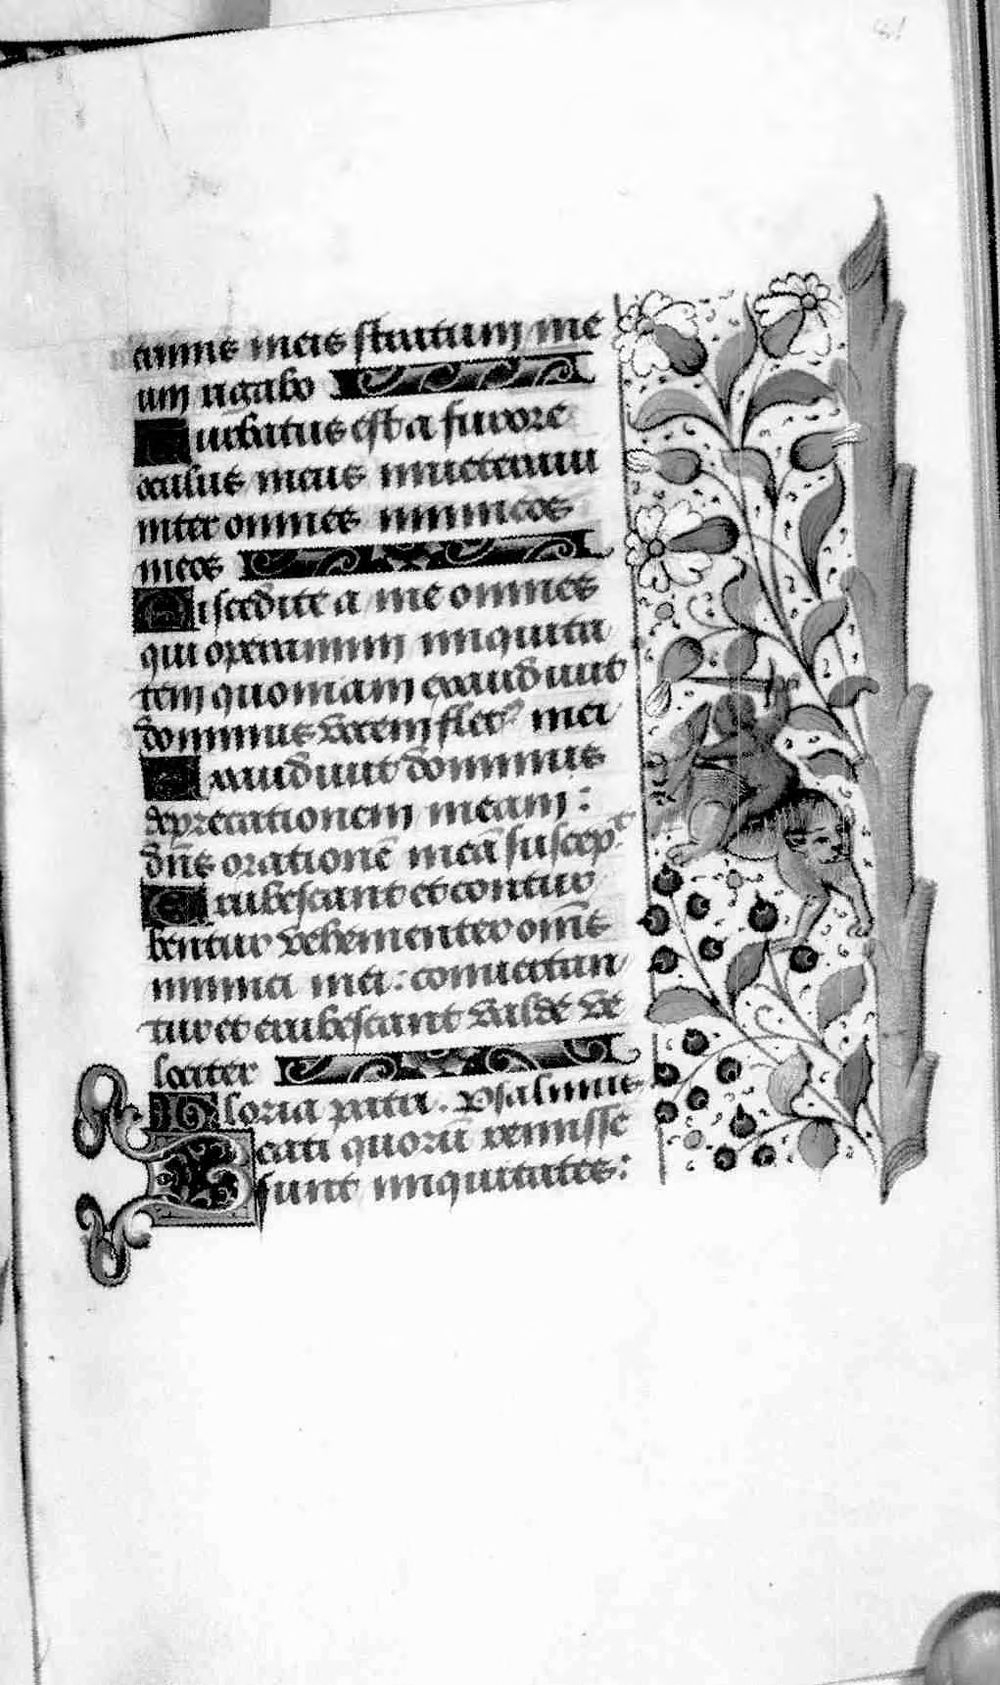 crimis meis stratum me
um rigabo
Turbatus est a furore
oculus meus inveteravi
inter omnes inimicos
meos
Discedite a me omnes
qui operamini iniquita
tem quoniam exaudivit
dominus vocem fletus mei
Exaudivit dominus
deprecationem meam :
dñs orationē meā suscepit
Erubescant et contur
bentur vehementer om̄s
inimici mei : convertan
tur et erubescant valde ve
lociter
Gloria patri . Psalmus
Beati quorū remisse
sunt iniquitates :